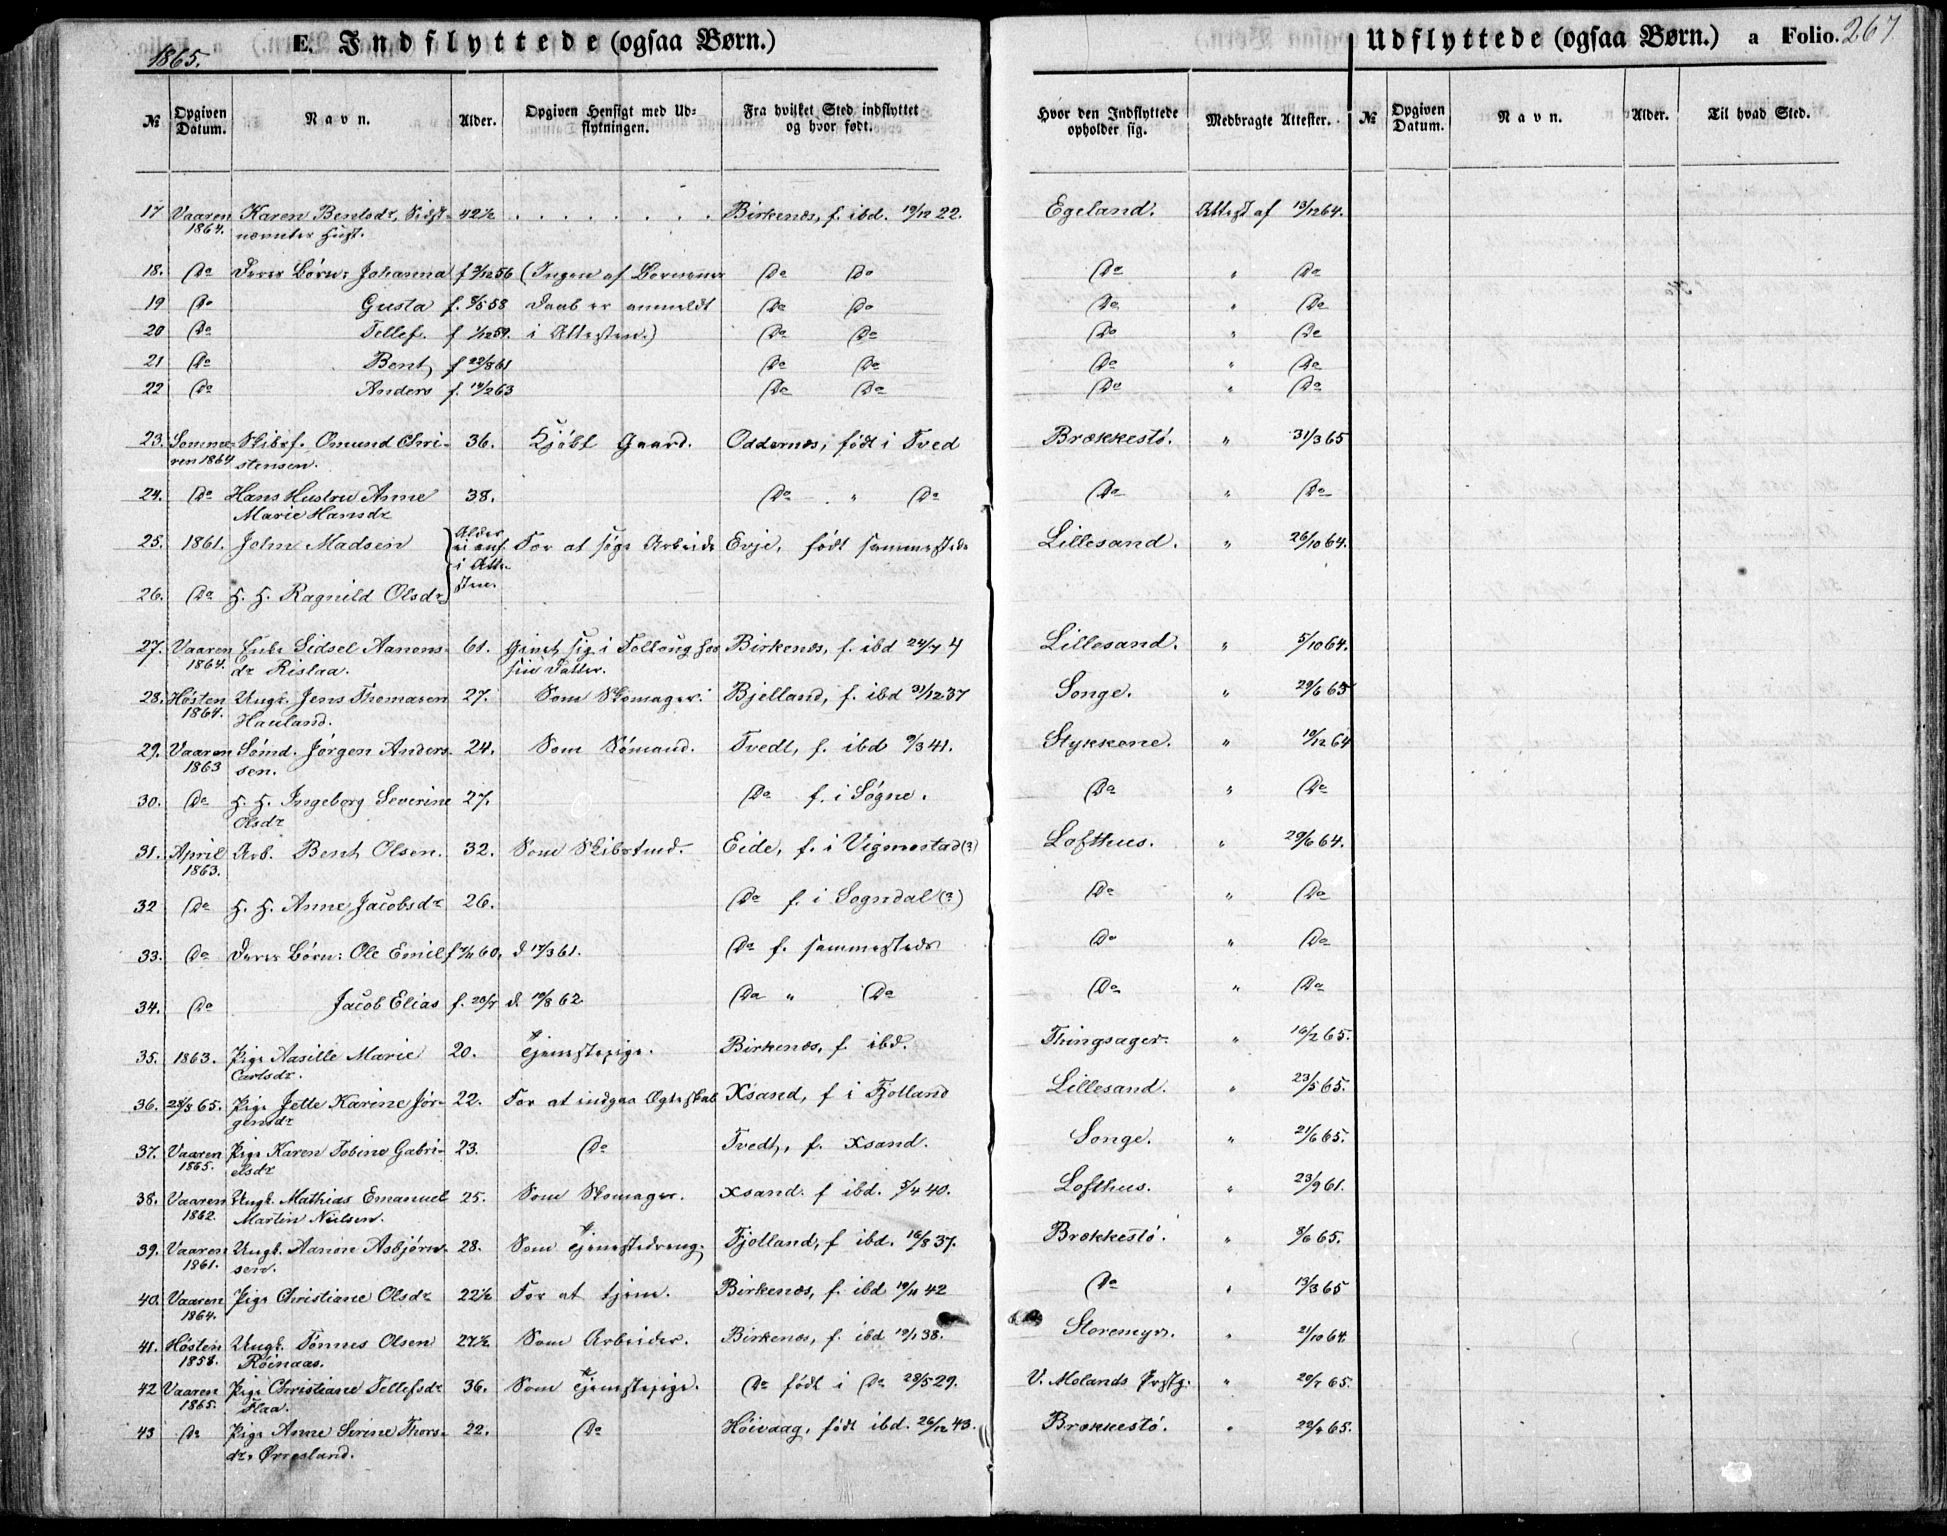 1865.
E. Indflyttede (ogsaa Børn.)
Udflyttede (ogsaa Børn.) a Folio. 267
№ Opgiven Datum. Navn. Alder. Opgiven Hensigt med Udflytningen. Fra hvilket Sted indflyttet og hvor født. Hvor den Indflyttede opholder sig. Medbragte Attester. № Opgiven Datum. Navn. Alder. Til hvad Sted.
17 Vaaren Karen Bentsdr, Sidst- 42½ . . . . . . . Birkenæs, f. ibd. 19/12 22. Egeland. Attest af 13/12 64.
1864. nævntes Hust.
18. Do Deres Børn: Johanna f 3/12 56 (Ingen af Børnenes Do Do Do " Do
19 Do Gusta f. 8/5 58 Daab er anmeldt Do Do Do " Do
20 Do Tellef. f 1/12 59. i Attesten.) Do Do Do " Do
21 Do Bent, f 22/8 61 Do Do Do " Do
22 Do Anders f. 14/2 63 Do Do Do " Do
23. Somme- Skibsf. Omund Chri- 36. Kjøbt Gaard. Oddernæs, født i Tved Brækkestø. " 31/3 65
ren 1864 stensen.
24. Do Hans Hustru Anne 38. Do " Do Do " Do
Marie Hansdr
25. 1861. John Madsen Alder ei anf. i Attesten. For at søge Arbeide Evje, født sammesteds Lillesand. " 26/10 64.
26. Do H. H. Ragnild Olsdr
27. Vaaren Enke Sidsel Aanons- 61. givet sig i Follaug hos Birkenæs, f. ibd 24/7 4 Lillesand. " 5/10 64.
1864. dr Rislaa. sin Datter.
28. Høsten Ungk. Jens Thomasen 27. Som Skomager. Bjelland, f. ibd 31/12 37 Songe. " 29/6 65
1864. Hauland.
29. Vaaren Sømd. Jørgen Anders- 24. Som Sømand. Tvedt, f. ibd 9/3 41. Stykkene. " 10/12 64
1863 sen.
30. Do H. H. Ingeborg Severine 27. Do f. i Søgne. Do " Do
Olsdr
31. April Arb. Bent Olsen. 32. Som Skibstmd. Eide, f. i Vigmostad (?) Lofthus. " 29/6 64.
1863.
32 Do H. H. Anne Jacobsdr 26. Do f. i Sogndal (?) Do " Do
33. Do Deres Børn: Ole Emil f 7/11 60, d 17/3 61. Do f. sammesteds Do " Do
34. Do Jacob Elias f. 20/7 d. 10/8 62 Do " Do Do " Do
35. 1863. Pige Aasille Marie 20. Tjenestepige. Birkenæs, f. ibd. Thingsager. " 16/2 65.
Carlsdr.
36. 28/3 65. Pige Jette Karine Jør- 22. For at indgaa Ægteskab Xsand, f i Fjotland Lillesand. " 23/5 65.
gensdr
37. Vaaren Pige Karen Tobine Gabri- 23. Do Tvedt, f. Xsand. Songe. " 21/6 65.
1865. elsdr
38. Vaaren Ungk. Mathias Emanuel 25. Som Skomager. Xsand. f ibd. 5/4 40. Lofthus. " 23/9 61.
1862. Martin Nielsen.
39. Vaaren Ungk. Aanon Asbjørn- 28. Som Tjenestedreng, Fjotland, f ibd. 16/8 37. Brækkestø. " 8/6 65.
1861. sen.
40. Vaaren Pige Christiane Olsdr 22½ For at tjene. Birkenæs, f. ibd 19/11 42 Do " 13/3 65
1864.
41. Høsten Ungk. Tønnes Olsen 27½ Som Arbeider. Birkenæs, f. ibd 19/1 38. Storemyr. " 21/10 64.
1858. Røinaas.
42 Vaaren Pige Christiane Tellefsdr 36. Som Tjenestepige. Do født i Do 28/5 29. V. Molands Prstg. " 20/7 65.
1865. Flaa.
43 Do Pige Anne Serine Thors- 22. Do Høivaag, født ibd. 26/12 43. Brækkestø. " 22/7 65.
dr. Ørresland.